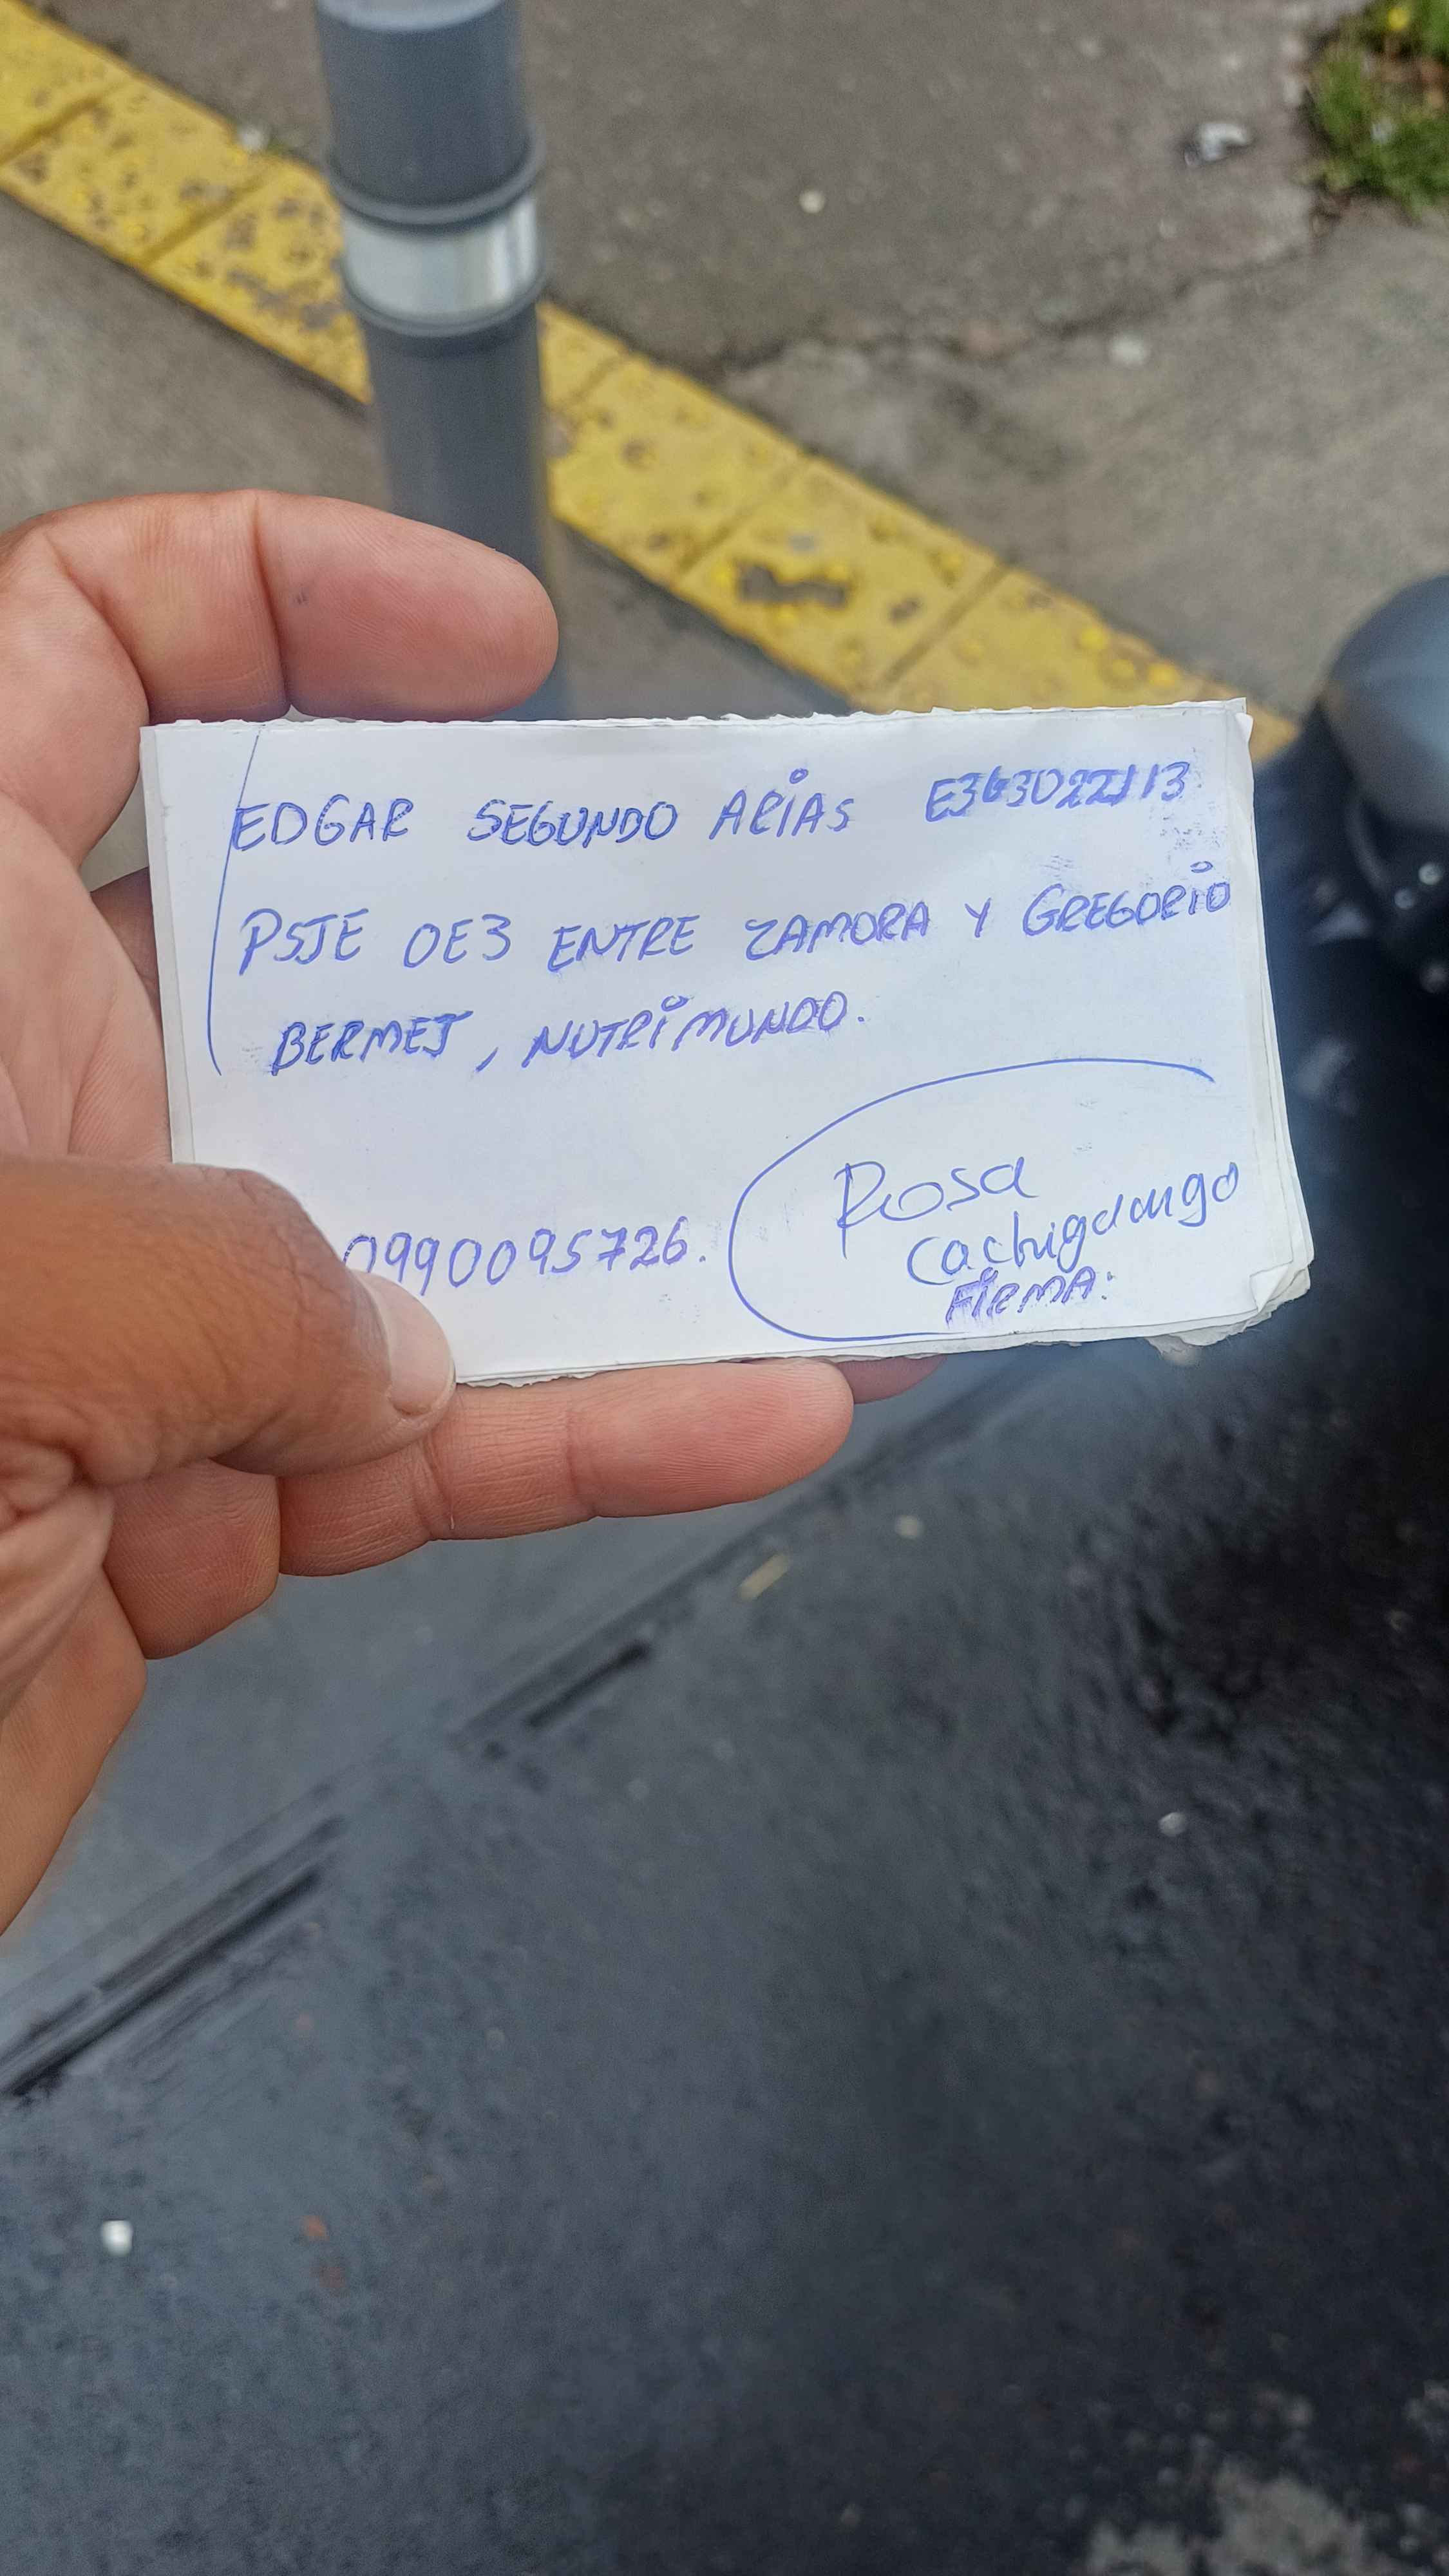 EDGAR SEGUNDO ARIAS E363022113
PSJE OE3 ENTRE ZAMORA Y GREGORIO
BERMEJ, NUTRIMUNDO.
Rosa
Cachiguango
0990095726.
FIRMA: